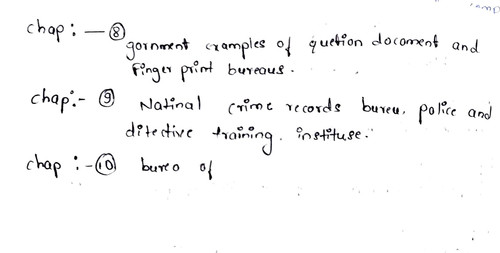 chap: — ⑧
gornment examples of quetion document and
Finger print bureaus.
chap:- ⑨ Natinal crime records bureu, police and
ditective training. instituse.
chap :- ⑩ bureo of